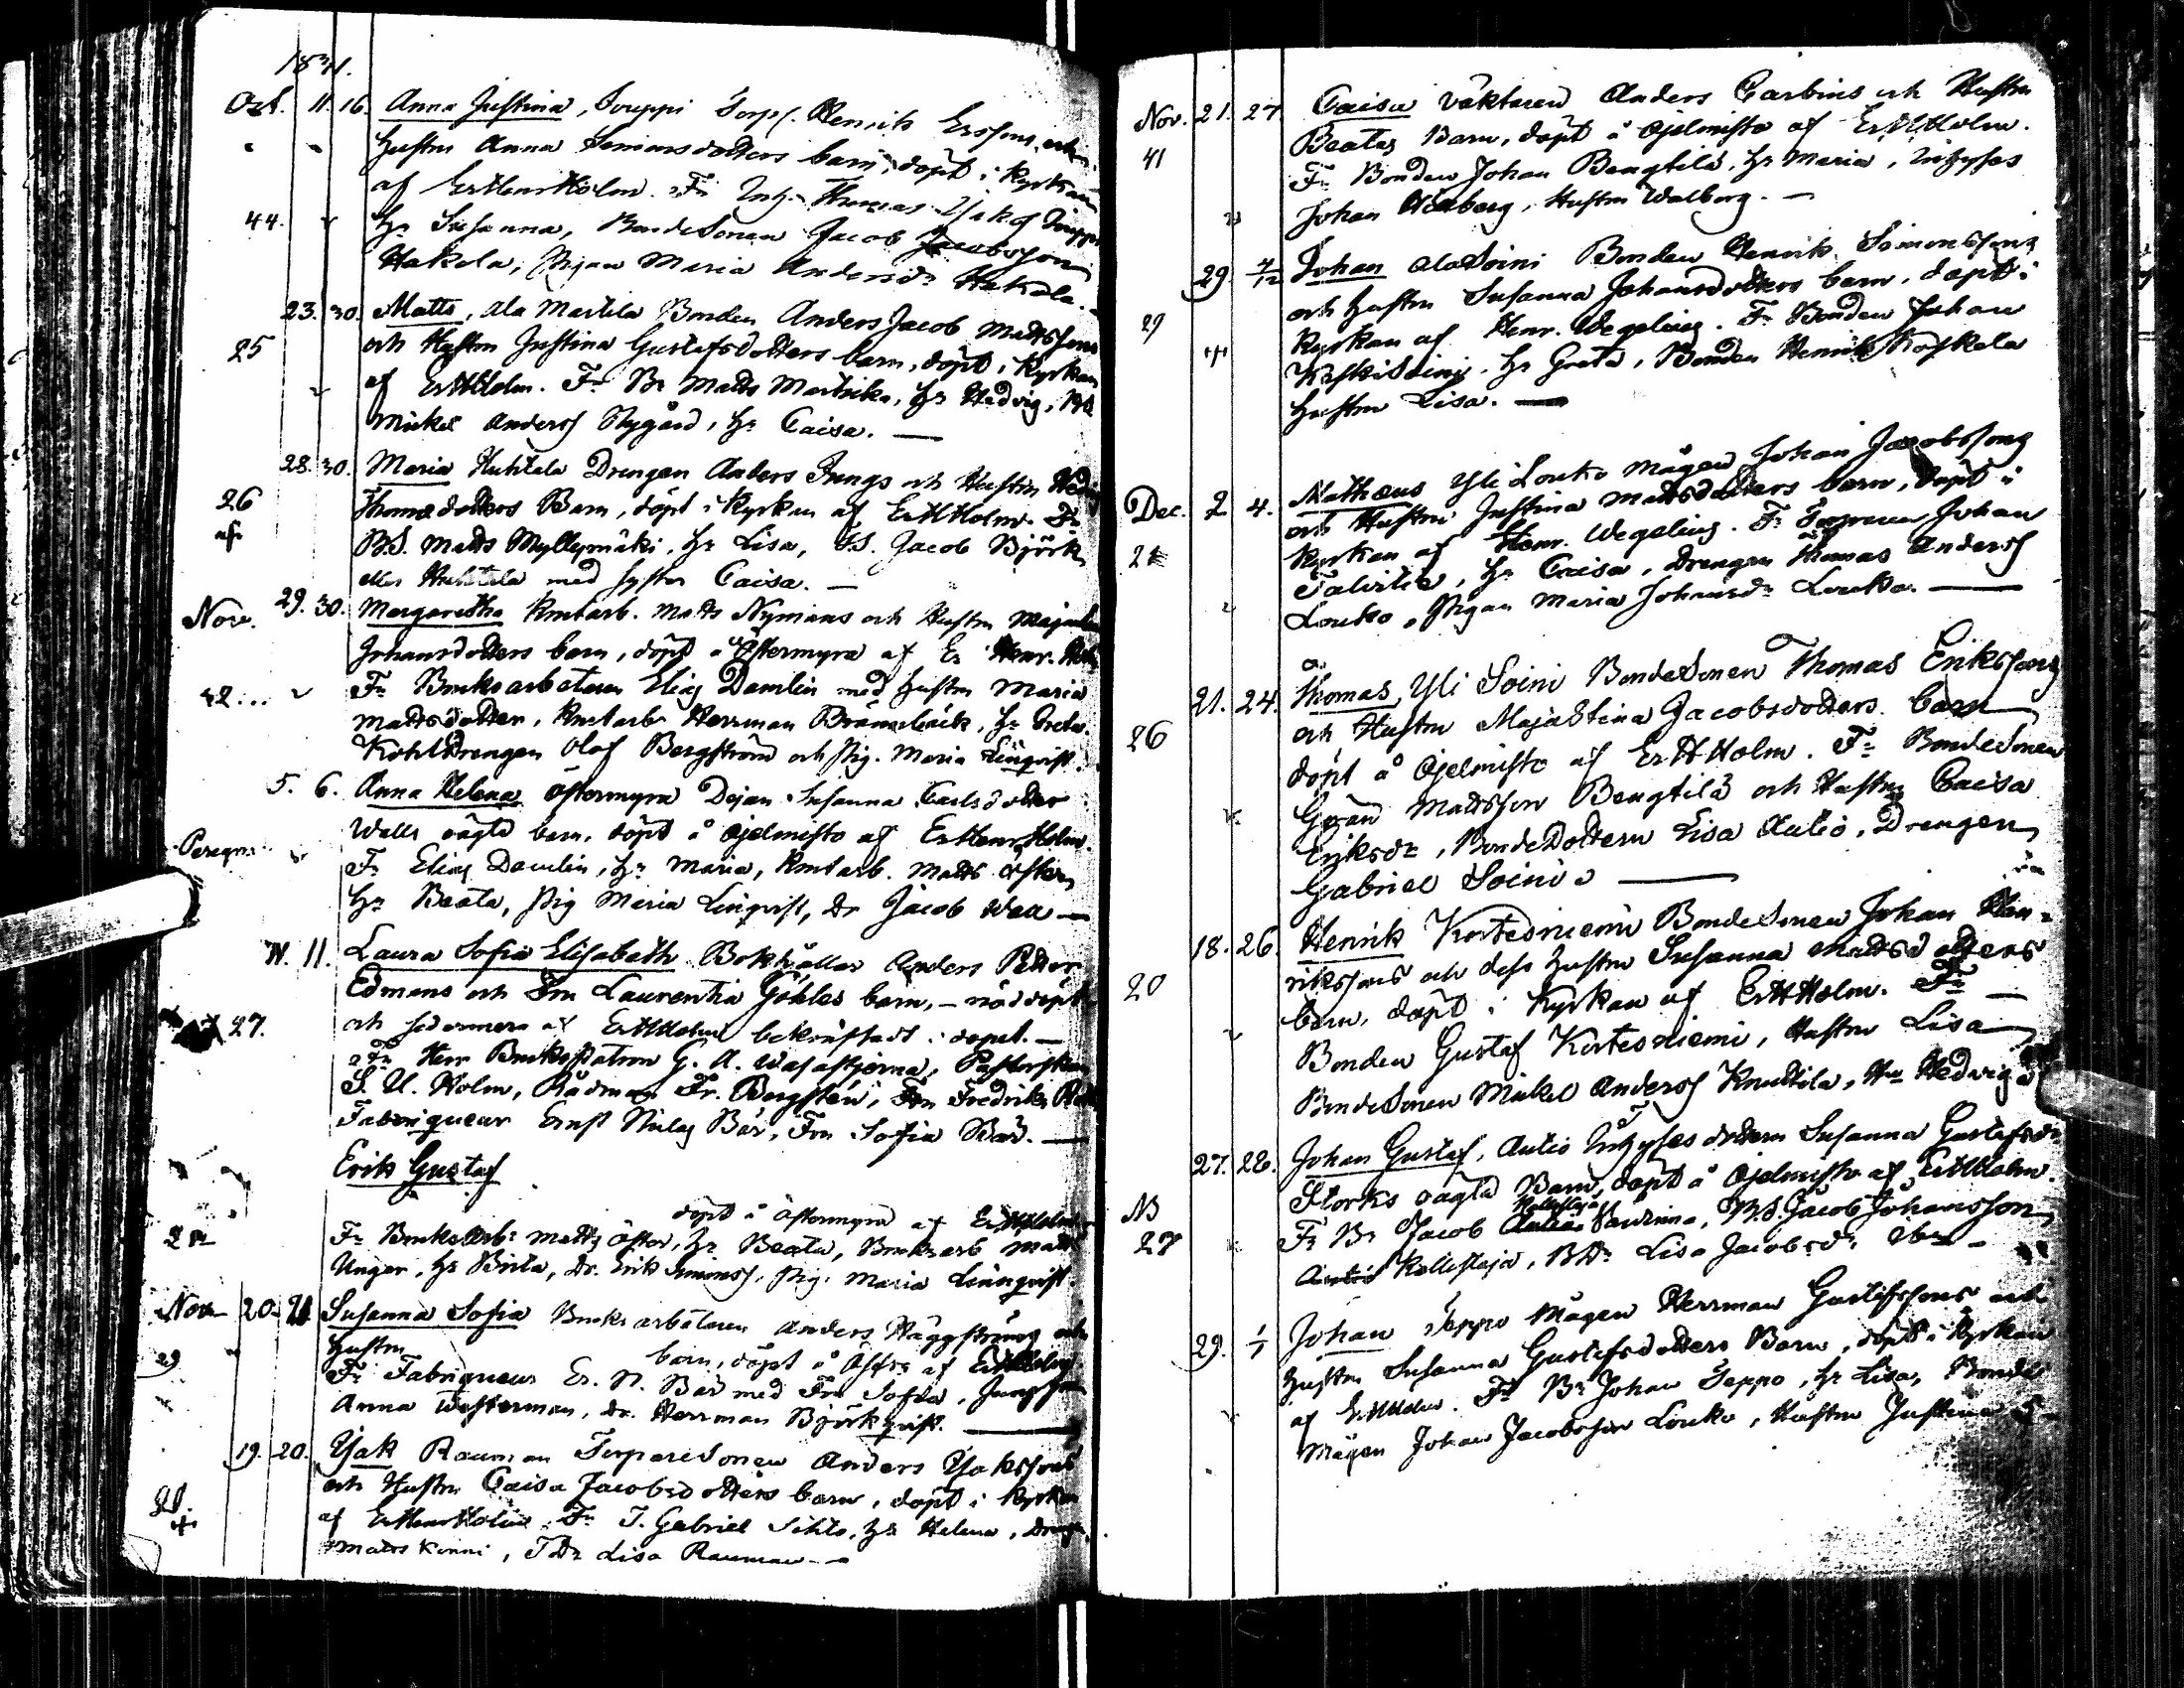 1831.
Oct. 11. 16. Anna Justina, Souppi Torp. Henrik Erssons och
Hustru Anna Simonsdotters barn, döpt i Kyrkan
af ErHenrHolm. Fr Inh. Thomas Isak Soupp
44. Hr Susanna, BondeSonen Jacob Jacobsson
Hakola, Pigan Maria Andersdr Hakola.
23. 30. Matts, Ala Martila Bonden Anders Jacob Mattssons
25 och Hustru Justina Gustafsdotters barn, döpt i Kyrkan
af ErHHolm. Fr Br Matts Martika, Hr Hedvig, BS.
Mickel Anderss Nygård, Hr Caisa. —
28. 30. Maria Huhtala Drengen Anders Jungs och Hustru Hed
26 Thomædotters Barn, döpt i Kyrkan af ErHHolm. Fr
B.S. Matts Myllymäki, Hr Lisa, T.S. Jacob Björk
eller Huhtala med syster Caisa. —
Nov. 29. 30. Margaretha Bruksarb. Matts Nymans och Hustru Maja
Johansdotters barn, döpt å Östermyra af Er Henr. Holm
42... Fr Bruksarbetaren Elias Damlin med hustru Maria
Mattsdotter, Bruksarbr Herrman Brännback, Hr Greta.
KohlDrengen Olof Bergström och Pig. Maria Linqvist.
5. 6. Anna Helena Östermyra Dejan Susanna Carlsdotter
Walls oägta barn, döpt å Ojelmisto af ErHenrHolm.
Peregr. Fr Elias Damlin, Hr Maria, Bruksarb. Matts Öster,
Hr Beata, Pig Maria Linqvist, Dr Jacob Wall —
11. Laura Sofia Elisabeth Bokhållar Anders Petter
Edmans och Fru Laurentia Göhles barn, – nöddöpt
27. och sedermera af ErHHolm bekräftadt i dopet. —
Fr Herr BruksPatron G. A. Wasastjerna, Pastorskan
S. U. Holm, Rådman Fr. Bergsten, Fru Fredrika
Fabriqueur Ernst Nielas Bär, Fru Sofia Bär. —
Erik Gustaf
döpt å Östermyra af ErHHolm
Fr BruksArbr Matts Öster, Hr Beata, Bruksarb Matts
Unger, Hr Brita, Dr. Erik Simonss, Pig. Maria Linnqvist.
Nov 20. 21 Susanna Sofia Bruksarbetaren Anders Häggströms och
hustru
29 barn, döpt å Östra af ErHHolm
Fr Fabriqueur Er. N. Bär med Fru Sofia, Jungfru
Anna Westerman, Dr. Herrman Björkqvist. —
19. 20. Isak Rauman TorpareSonen Anders Isakssons
och Hustru Caisa Jacobsdotters barn, döpt i Kyrkan
af ErHenrHolm. Fr T. Gabriel Sihto, Hr Helena, Dreng
Matts Kinni, TDr Lisa Rauman —
Nov. 21. 27. Caisa Väktaren Anders Carbins och Hustru
Beatas Barn, döpt å Ojelmisto af ErHHolm.
41 Fr Bonden Johan Bengtila, Hr Maria, Inhyses
Johan Wiberg, Hustru Walborg. —
29. 4/12 Johan AlaSoini Bonden Henrik Simonssons
och hustru Susanna Johansdotters barn, döpt i
29 Kyrkan af Henr. Wegelius. Fr Bonden Johan
KoskiSoini, Hr Greta, Bonden Henrik Koskela
Hustru Lisa. —
Dec. 2 4. Mathæus YliLouko Mågen Johan Jacobssons
och Hustru Justina Mattsdotters barn, döpt i
Kyrkan af Henr. Wegelius. Fr Torparen Johan
Talvitie, Hr Caisa, Drengen Thomas Anderss
Louko, Pigan Maria Johansdr Louko. —
21. 24. Thomas, Yli Soini BondeSonen Thomas Erikssons
26 och Hustru MajaStina Jacobsdotters barn
döpt å Ojelmisto af ErHHolm. Fr BondeSonen
Göran Mattsson Bengtila och Hustru Caisa
Eriksdr, BondeDottern Lisa Autio, Drengen
Gabriel Soini —
18. 26. Henrik Kortesniemi BondeSonen Johan Hen-
20 rikssons och dess hustru Susanna Mattsdotters
barn, döpt i Kyrkan af ErHHolm. Fr —
Bonden Gustaf Kortesniemi, Hustru Lisa
BondeSonen Mickel Anderss Knuttila, Hu Hedvig
27. 28. Johan Gustaf, Autio Inhysesdottern Susanna Gustafsdr
Storks oägta Barn, döpt å Ojelmisto af ErHHolm.
NB Fr Br Jacob Saurima, B.S. Jacob Johansson
27 Kallistaja, BDr Lisa Jacobsdr ibm –
29. 1/1 Johan Seppo Mågen Herrman Gustafssons och
hustru Susanna Gustafsdotters Barn, döpt i Kyrkan
af ErHHolm. Fr Br Johan Seppo, Hr Lisa, Bonde
Mågen Johan Jacobsson Louko, Hustru Justina